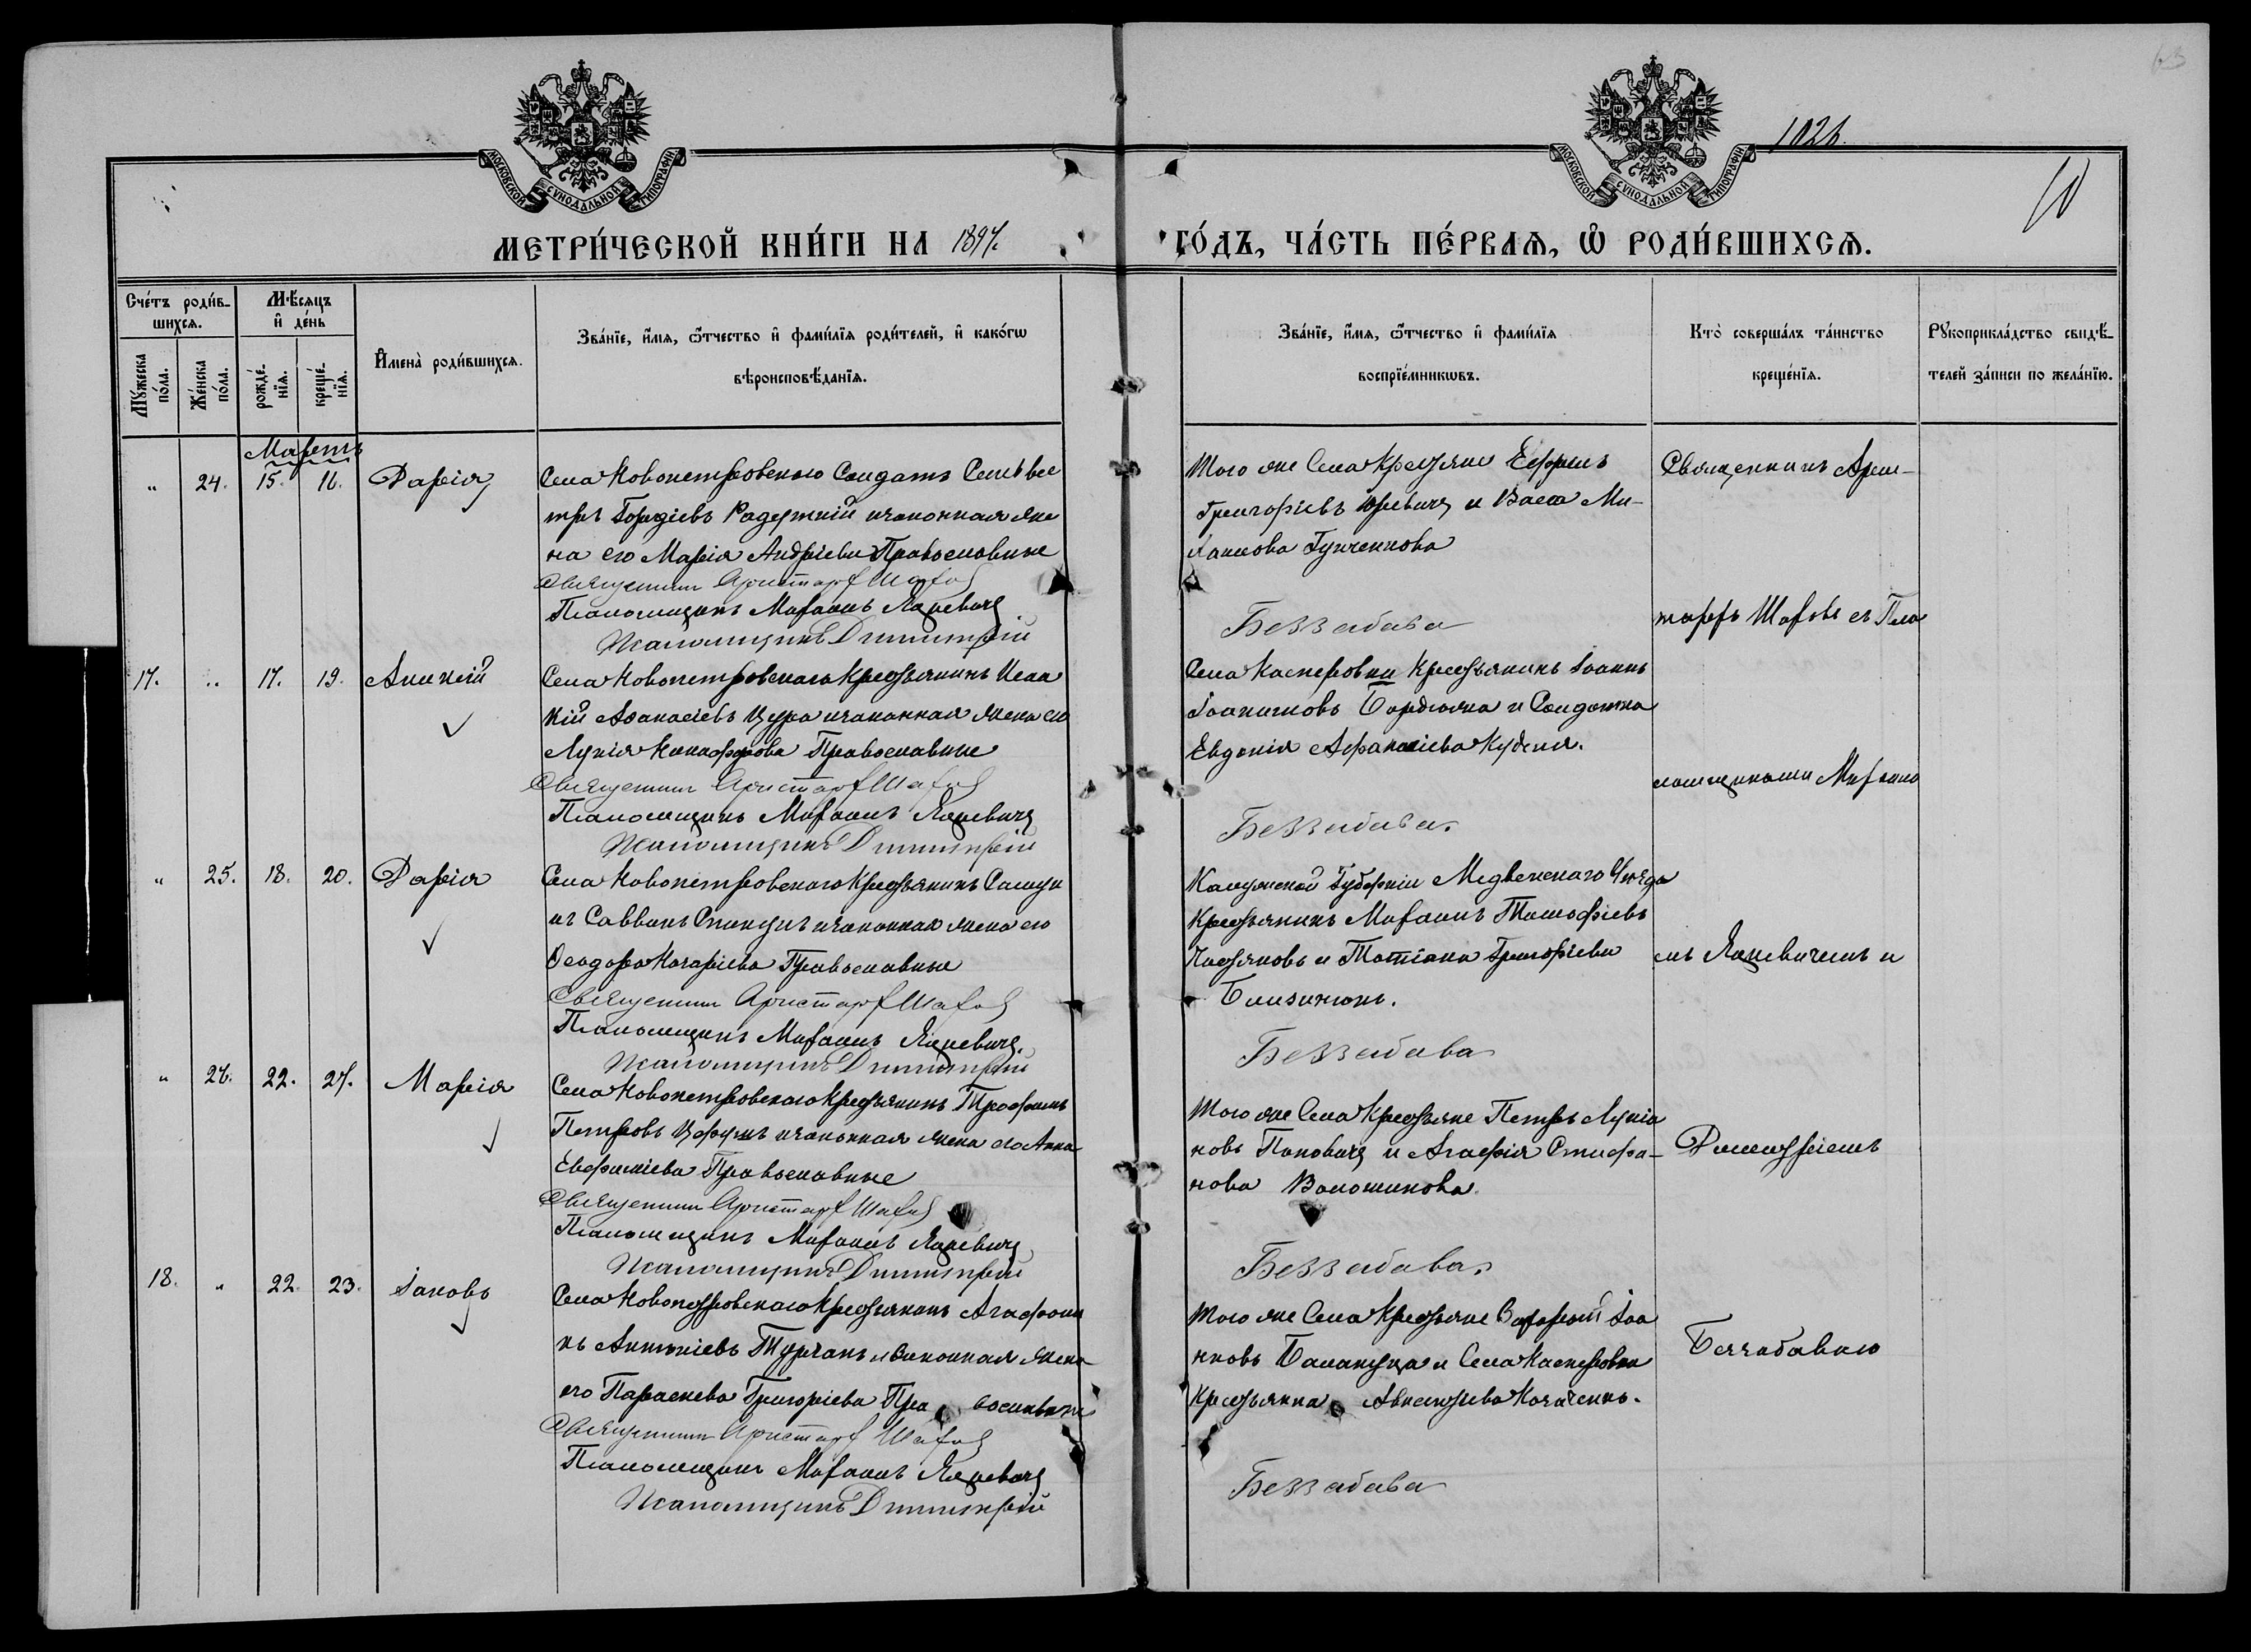 63
1026.
10
МОСКОВСКОЙ СѴНОДАЛЬНОЙ ТИПОГРАФІИ
МОСКОВСКОЙ СѴНОДАЛЬНОЙ ТИПОГРАФІИ
МЕТРИ́ЧЕСКОЙ КНИ́ГИ НА 1897.
ГО́ДЪ, ЧА́СТЬ ПЕ́РВАЯ, Ѡ҆ РОДИ́ВШИХСЯ.
Сче́тъ роди́вшихся.
Мꙋ́жеска по́ла.
Же́нска по́ла.
Мѣ́сяцъ и҆ де́нь
рожде́нїя.
креще́нїя.
И҆мена̀ роди́вшихся.
Зва́нїе, и҆́мя, ѻ҆́тчество и҆ фами́лїя роди́телей, и҆ како́гѡ
вѣроисповѣ́данїя.
Зва́нїе, и҆́мя, ѻ҆́тчество и҆ фами́лїя
воспрїе́мникѡвъ.
Кто̀ соверша́лъ та́инство
креще́нїя.
Рꙋкоприкла́дство свидѣ́-
телей за́писи по жела́нїю.
Мартъ
" 24. 15. 16. Дарія
Села Новопетровскаго Солдатъ Сельвес
тръ Гордіевъ Радужній изаконная же
на его Марія Андріева Православные
Священникъ Аристархъ Шаховъ
Псаломщикъ Михаилъ Яцкевичъ
Псаломщикъ Димитрій
Того же Села Крестьяне Ефремъ
Григоріевъ Юревичъ и Васса Ми-
хаилова Гунченкова
Беззабава
Священникъ Арис-
тархъ Шаховъ съ Пса
17. " 17. 19. Алексій
Села Новопетровскаго Крестьянинъ Исаа
кій Аѳанасіевъ Цура изаконная жена его
Лукія Никифорова Православные
Священникъ Аристархъ Шаховъ
Псаломщикъ Михаилъ Яцкевичъ
Псаломщикъ Димитрій
Села Касперовки Крестьянинъ Іоаннъ
Іоакимовъ Бордюжа и Солдатка
Евдокія Афанасіева
Беззабава
ломщиками Михаило
" 25. 18. 20. Дарія
Села Новопетровскаго Крестьянинъ Самуи
лъ Саввинъ изаконная жена его
Ѳеодора Захаріева Православные
Священникъ Аристархъ Шаховъ
Псаломщикъ Михаилъ Яцкевичъ
Псаломщикъ Димитрій
Калужской Губерніи Медвенскаго Уѣзда
Крестьянинъ Михаилъ Тимофіевъ
и Татіана Григоріева
Близнюкъ.
Беззабава
мъ Яцкевичемъ и
" 26. 22. 27. Марія
Села Новопетровскаго Крестьянинъ Трофимъ
Петровъ изаконная жена его Анна
Евфиміева Православные
Священникъ Аристархъ Шаховъ
Псаломщикъ Михаилъ Яцкевичъ
Псаломщикъ Димитрій
Того же Села Крестьяне Петръ Лукіа
новъ Поповичъ и Агафія Стефа-
нова Волошинова
Беззабава
Димитріемъ
18. " 22. 23. Іаковъ
Села Новопетровскаго Крестьянинъ Агафони
къ Антоніевъ Турчакъ изаконная жена
его Параскева Григоріева Православные
Священникъ Аристархъ Шаховъ
Псаломщикъ Михаилъ Яцкевичъ
Псаломщикъ Димитрій
Того же Села Крестьяне Іоа
нновъ Балакуца и Села Касперовки
Крестьянка
Беззабава
Беззабавою